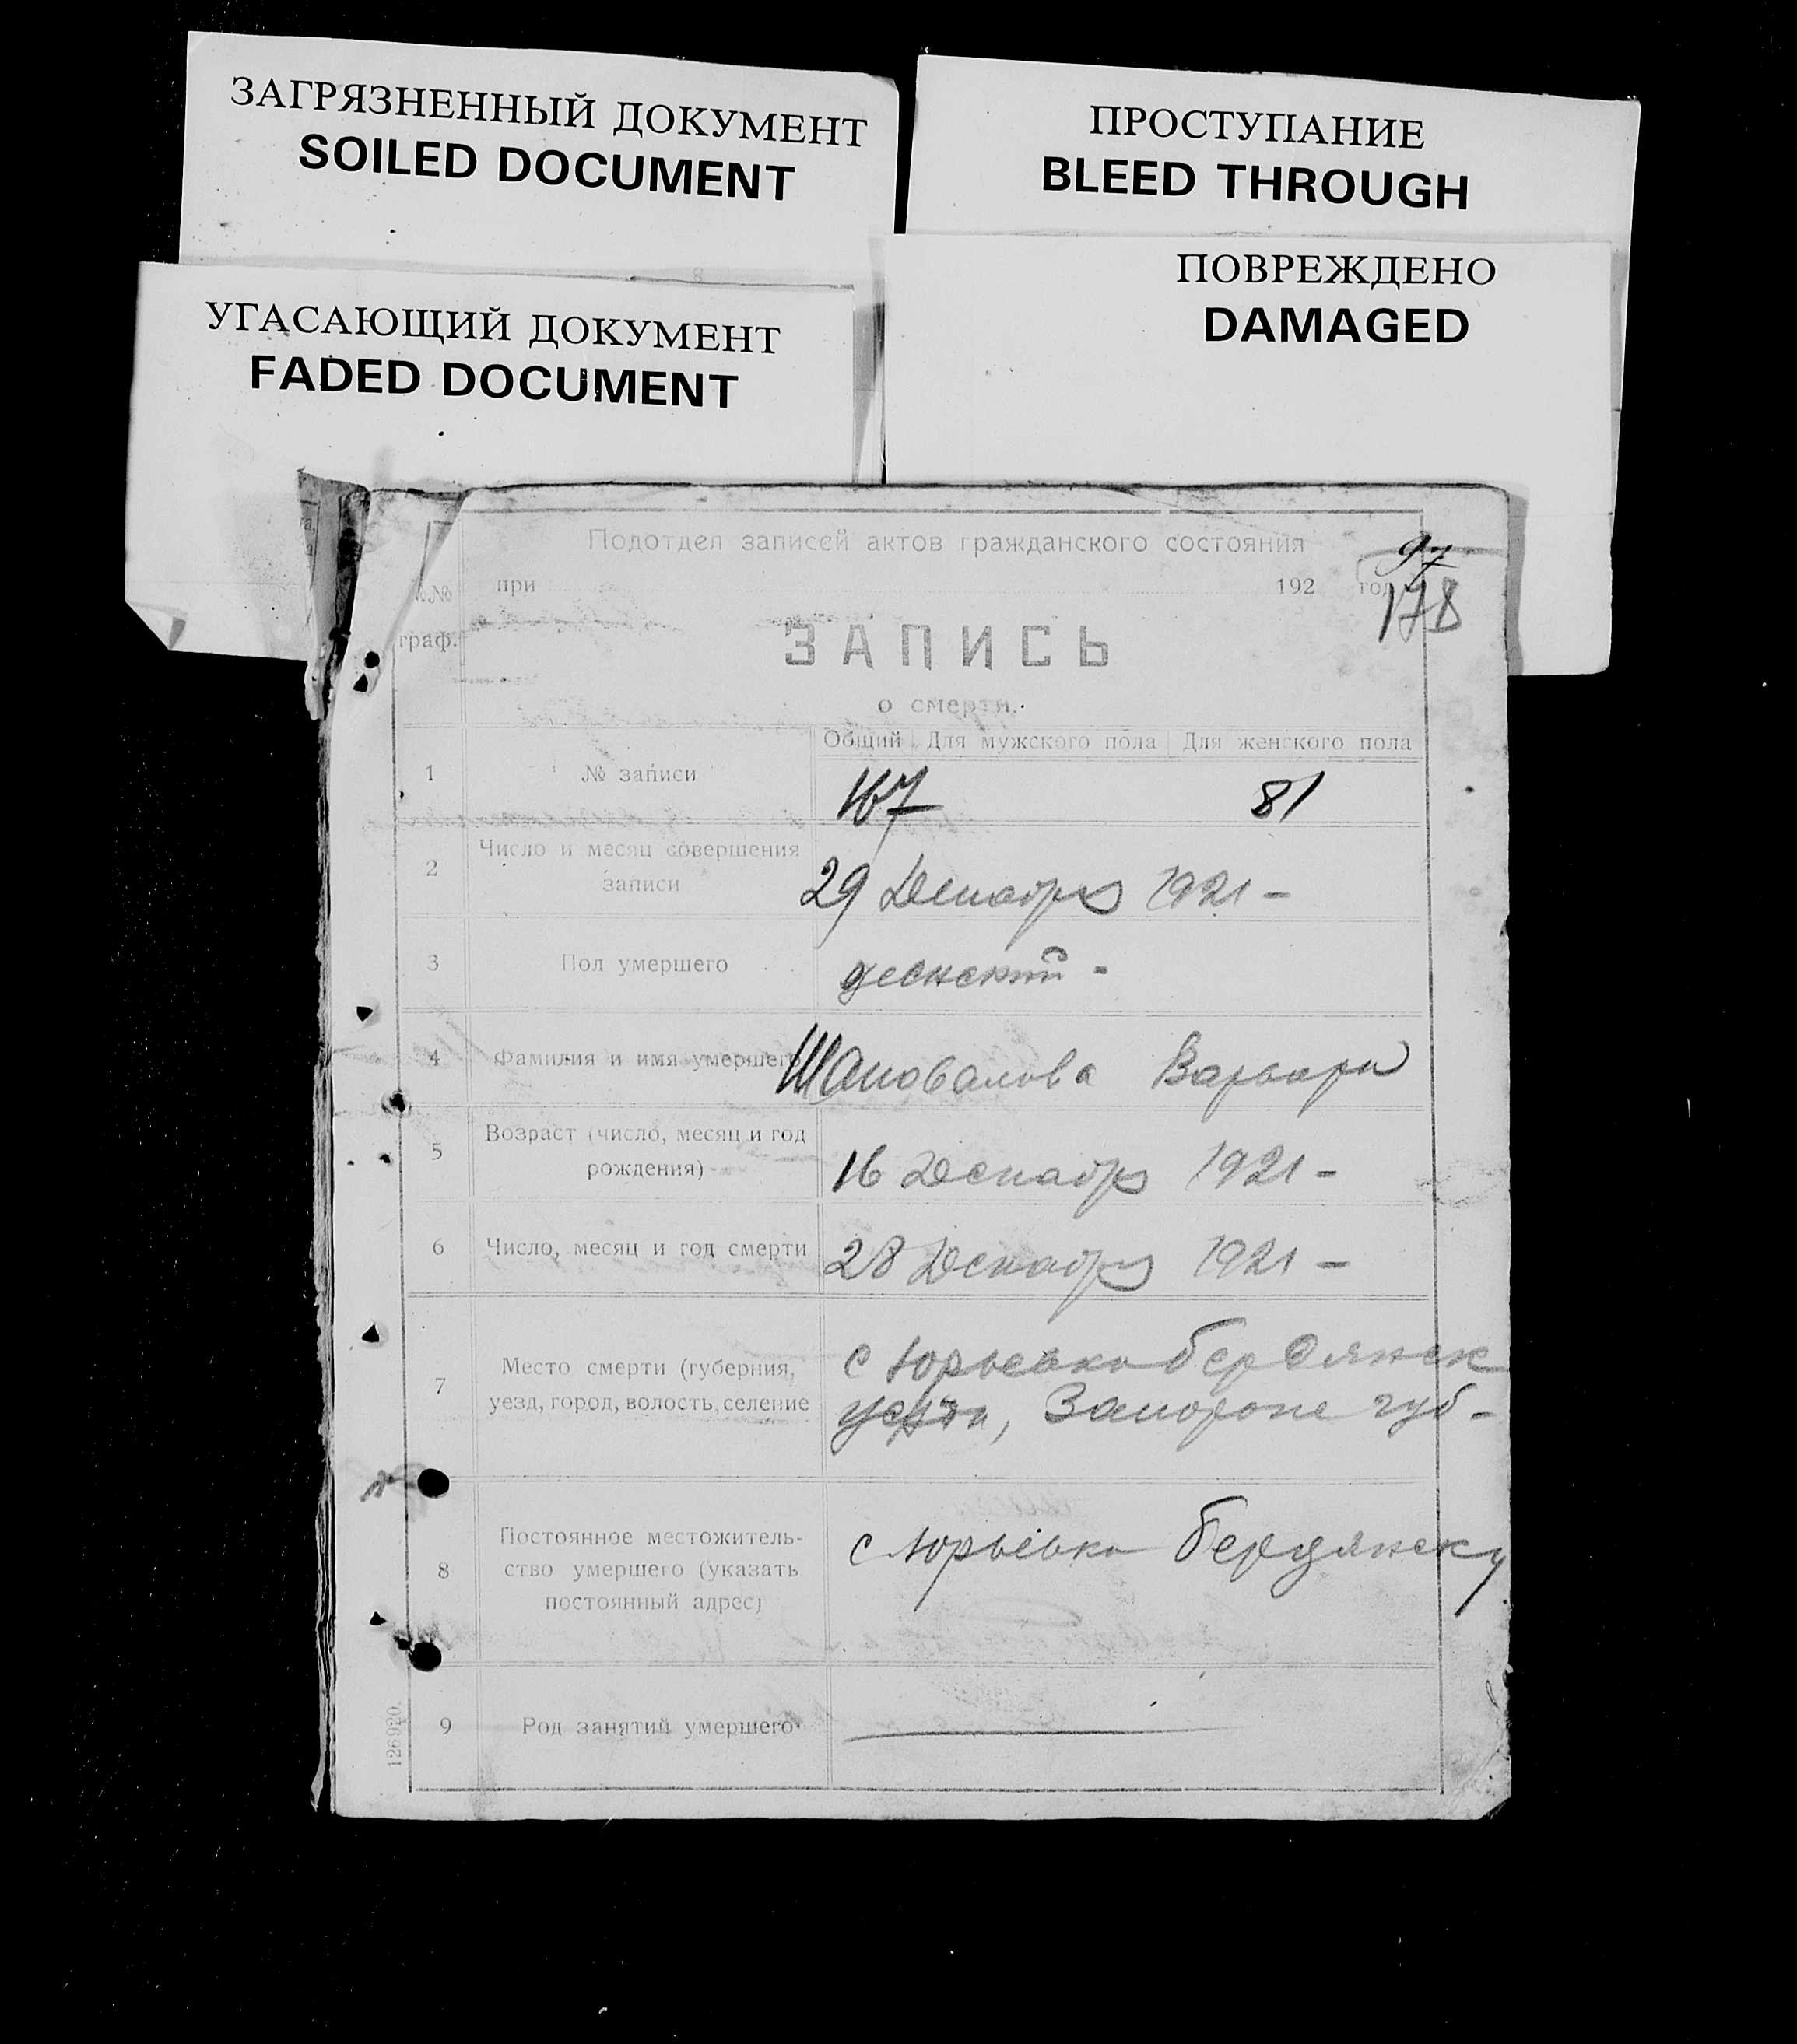 ЗАГРЯЗНЕННЫЙ ДОКУМЕНТ
SOILED DOCUMENT
ПРОСТУПАНИЕ
BLEED THROUGH
УГАСАЮЩИЙ ДОКУМЕНТ
FADED DOCUMENT
ПОВРЕЖДЕНО
DAMAGED
Подотдел записей актов гражданского состояния
97
при 192 год
178
№№
граф.
ЗАПИСЬ
о смерти.
Общий Для мужского пола Для женского пола
1 № записи 167 81
2 Число и месяц совершения
записи
29 Декабря 1921 -
3 Пол умершего женский -
4 Фамилия и имя умершего Шаповалова Варвара
5 Возраст (число, месяц и год
рождения)
16 Декабря 1921 -
6 Число, месяц и год смерти 28 Декабря 1921 -
7 Место смерти (губерния,
уезд, город, волость, селение
с Юрьевка Бердянск
уезда, Запорож губ -
8 Постоянное местожитель-
ство умершего (указать
постоянный адрес)
с Юрьевка Бердянск у
9 Род занятий умершего
126920